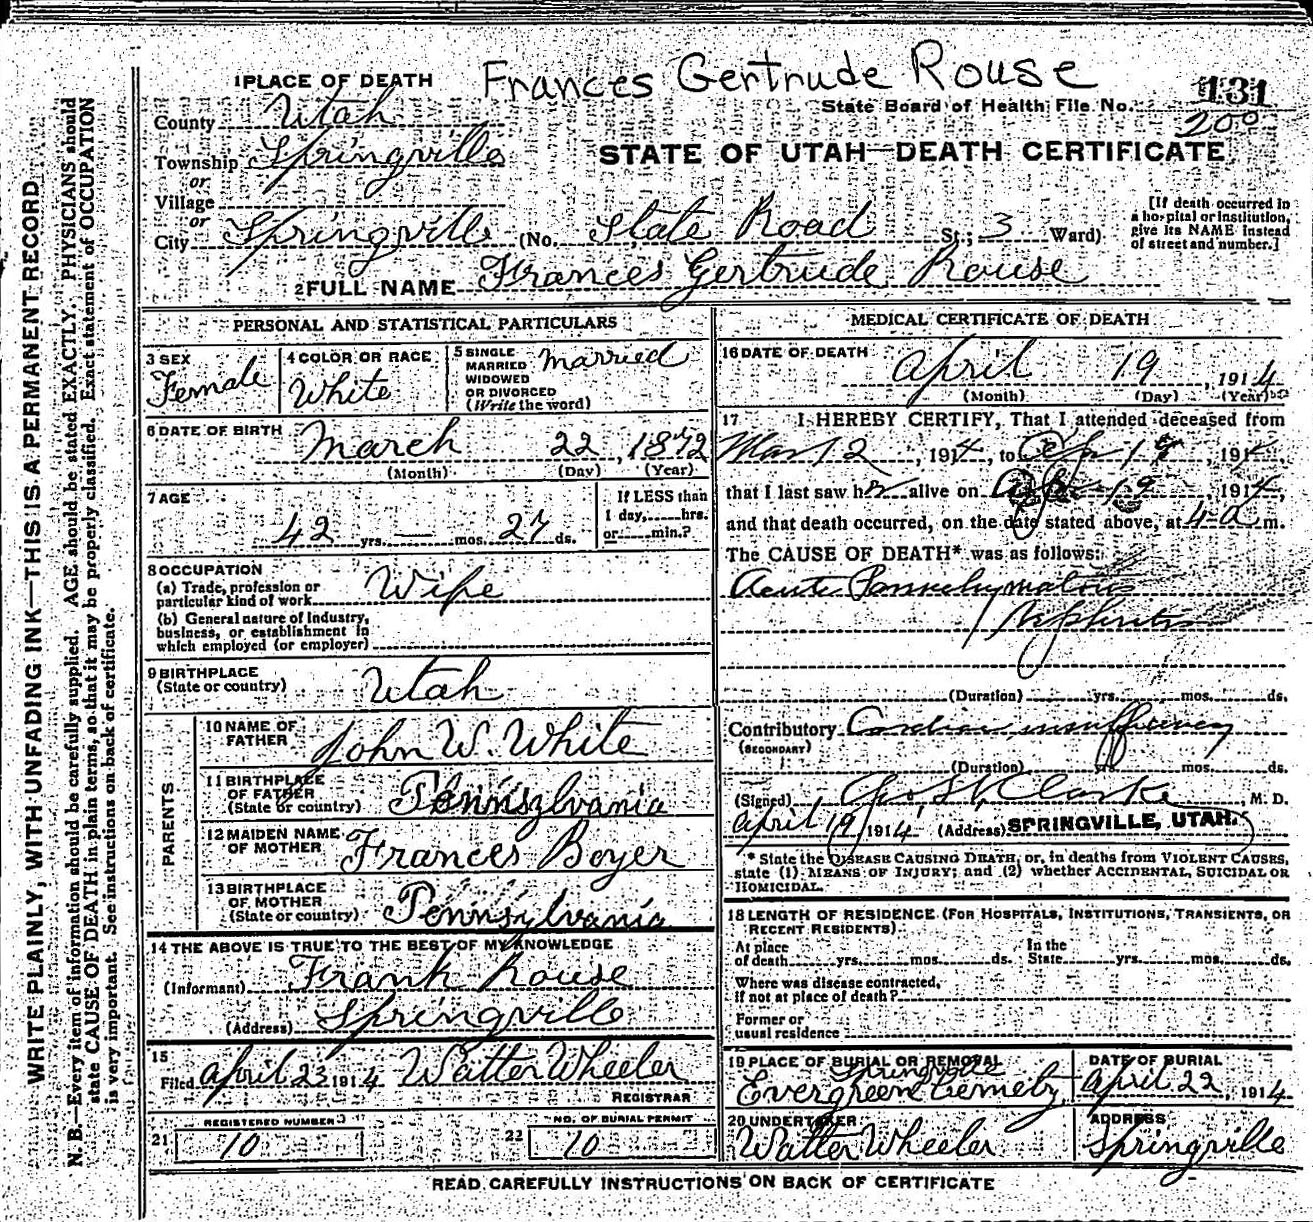 Frances Gertrude Rouse
1 PLACE OF DEATH
State Board of Health File No. 131
200
County Utah
Township Springville
or
Village
or
City Springville (No. State Road St.; 3 Ward)
STATE OF UTAH—DEATH CERTIFICATE
[If death occurred in
a hospital or institution,
give its NAME instead
of street and number.]
2 FULL NAME Frances Gertrude Rouse
PERSONAL AND STATISTICAL PARTICULARS
3 SEX
Female
4 COLOR OR RACE
White
5 SINGLE
MARRIED
WIDOWED
OR DIVORCED
(Write the word)
Married
6 DATE OF BIRTH March 22, 1872
(Month) (Day) (Year)
7 AGE
42 yrs. — mos. 27 ds.
If LESS than
1 day, hrs.
or min.?
8 OCCUPATION
(a) Trade, profession or
particular kind of work Wife
(b) General nature of Industry,
business, or establishment in
which employed (or employer)
9 BIRTHPLACE
(State or country) Utah
PARENTS
10 NAME OF
FATHER John W. White
11 BIRTHPLACE
OF FATHER
(State or country) Pennsylvania
12 MAIDEN NAME
OF MOTHER Frances Boyer
13 BIRTHPLACE
OF MOTHER
(State or country) Pennsylvania
14 THE ABOVE IS TRUE TO THE BEST OF MY KNOWLEDGE
(Informant) Frank Rouse
(Address) Springville
15
Filed April 23 1914 Walter Wheeler
REGISTRAR
REGISTERED NUMBER
21 10
NO. OF BURIAL PERMIT
22 10
MEDICAL CERTIFICATE OF DEATH
16 DATE OF DEATH
April 19, 1914
(Month) (Day) (Year)
17 I HEREBY CERTIFY, That I attended deceased from
Mar 12, 1914, to Ap 19, 1914,
that I last saw h alive on Ap 19, 1914,
and that death occurred, on the date stated above, at 4 a m.
The CAUSE OF DEATH* was as follows:
Acute Parenchymatous
Nephritis
(Duration) yrs. mos. ds.
Contributory Cardiac insufficiency
(SECONDARY)
(Duration) yrs. mos. ds.
(Signed) Geo. Clarke, M. D.
April 19, 1914 (Address) SPRINGVILLE, UTAH.
* State the DISEASE CAUSING DEATH, or, in deaths from VIOLENT CAUSES,
state (1) MEANS OF INJURY; and (2) whether ACCIDENTAL, SUICIDAL OR
HOMICIDAL.
18 LENGTH OF RESIDENCE (FOR HOSPITALS, INSTITUTIONS, TRANSIENTS, OR
RECENT RESIDENTS).
At place
of death yrs. mos. ds.
In the
State yrs. mos. ds.
Where was disease contracted,
if not at place of death?
Former or
usual residence
19 PLACE OF BURIAL OR REMOVAL
Springville
Evergreen Cemetery
DATE OF BURIAL
April 22, 1914
20 UNDERTAKER
Walter Wheeler
ADDRESS
Springville
READ CAREFULLY INSTRUCTIONS ON BACK OF CERTIFICATE
WRITE PLAINLY, WITH UNFADING INK—THIS IS A PERMANENT RECORD
N. B.—Every item of information should be carefully supplied. AGE should be stated EXACTLY. PHYSICIANS should
state CAUSE OF DEATH in plain terms, so that it may be properly classified. Exact statement of OCCUPATION
is very important. See instructions on back of certificate.